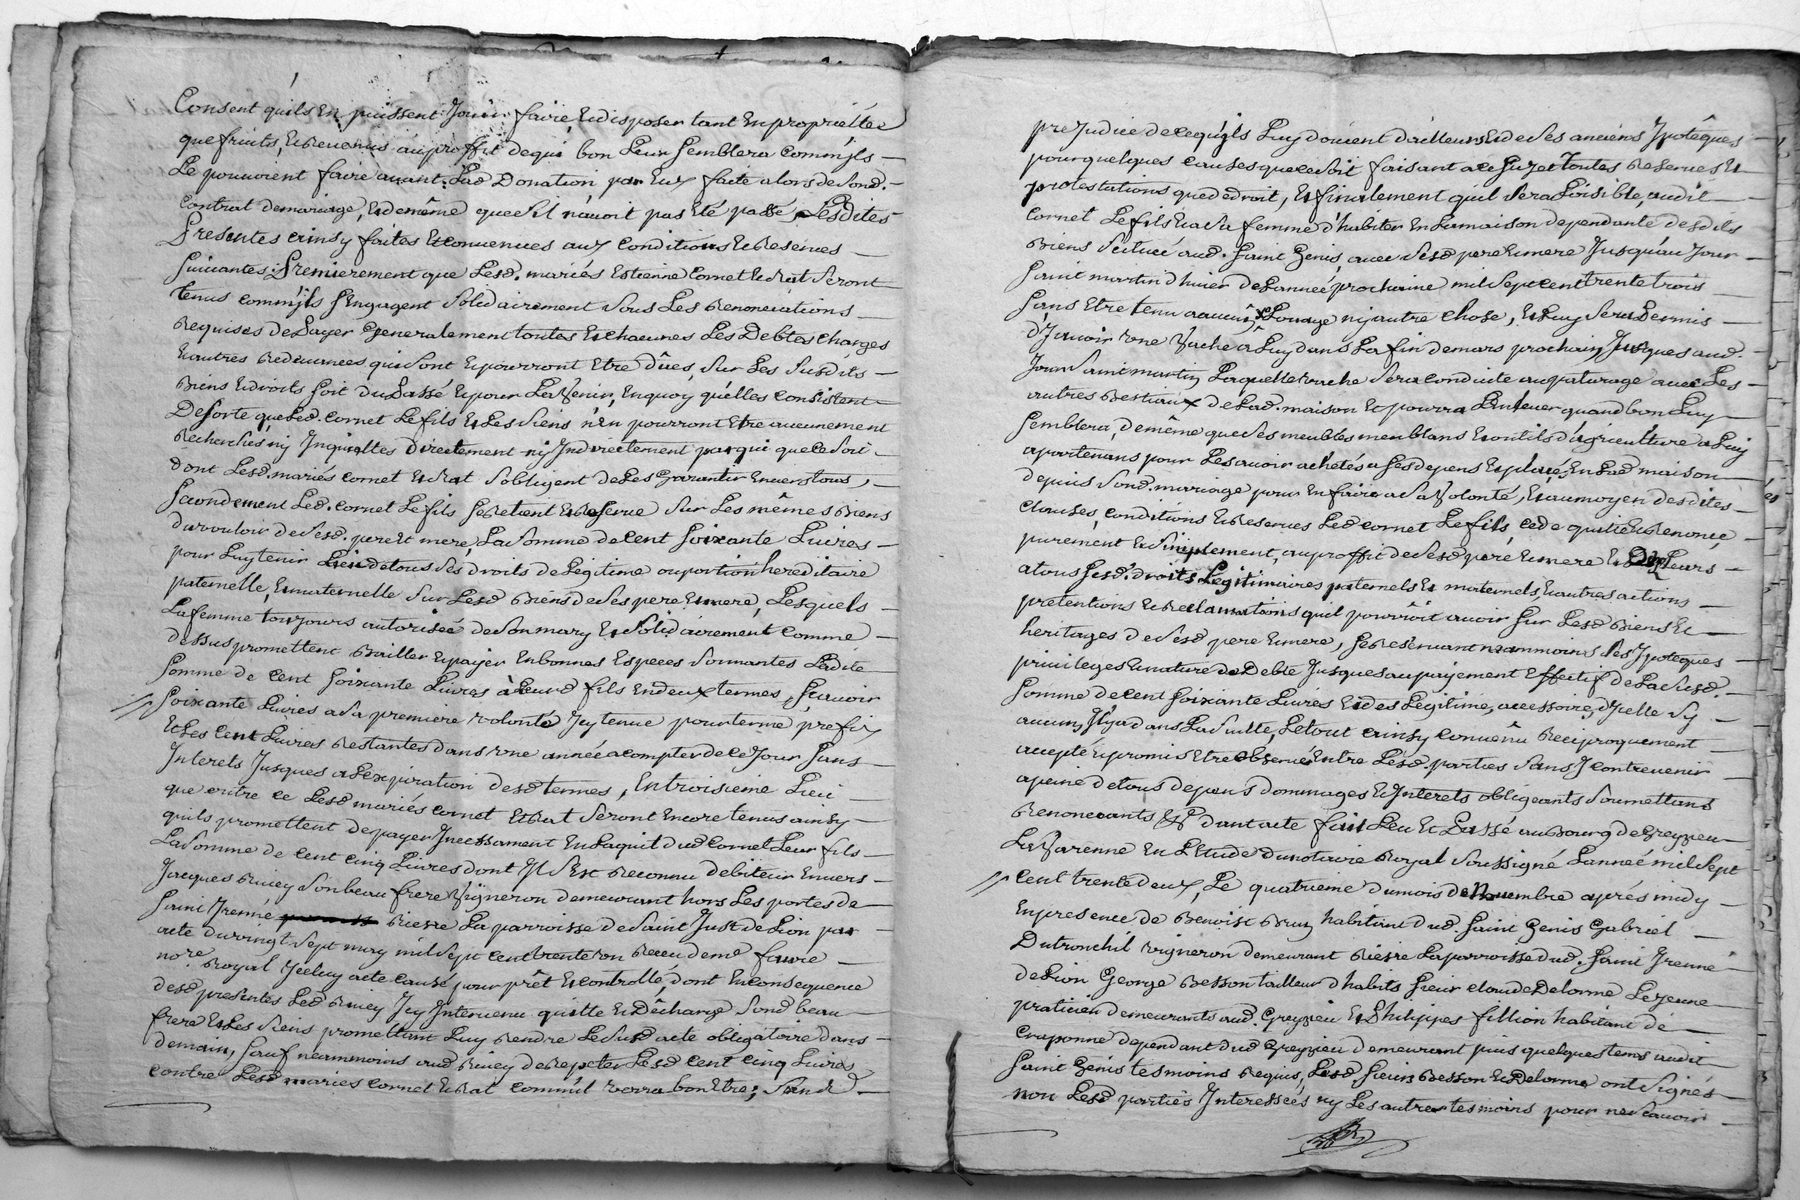 Consent quils En puissent Jouir faire Et disposer tant En propriétés
que fruits, Et Revenus au proffit de qui bon Leur Semblera Comm'jls —
Le pouvoient faire avant Lad Donation par Eux faite alors de Sond. —
Contrat de mariage, Et de même que s'il n'avoit pas Eté passé, Lesdites
Presentes ainsy faites Et convenues aux conditions Et Reserves —
Suivantes: Premierement que Lesd. mariés Estienne Cornet Et Rat Seront
tenus comm'jls S'engagent Solidairement Sous Les Renonciations —
Requises de Payer Generalement toutes Et chacunes Les Debtes charges
Et autres Redevances qui Sont Et pourront Etre dûes, Sur Les Susdits —
Biens Et droits Soit du Passé Et pour L'avenir, En quoy qu'elles consistent —
De sorte que Led Cornet Le fils Et Les Siens n'en pourront Etre aucunement
Recherchés ny Inquiettés Directement ny Indirectement par qui que ce Soit —
dont Lesd. mariés Cornet Et Rat S'obligent de Les Garantir Envers tous, —
Secondement Led. Cornet Le fils Se Retient Et Reserve Sur Les mêmes Biens
du vouloir de Sesd. pere Et mere, La Somme de Cent Soixante Livres —
pour Luy tenir Lieu de tous Ses Droits de Légitime ou portion hereditaire
paternelle, Et maternelle Sur Lesd Biens de Ses pere Et mere, Lesquels —
La femme toujours autorisée de Son mary Et Solidairement Comme —
dessus promettent Bailler Et payer En bonnes Especes Sonnantes Ladite
Somme de Cent Soixante Livres à Leurd fils En deux termes, Sçavoir
Soixante Livres a Sa premiere volonté Icy tenue pour terme prefix
Et Les Cent Livres Restantes dans une année a compter de Ce Jour Sans —
Interets Jusques a L'expiration desd termes, En troisieme Lieu —
que outre ce Lesd mariés Cornet Et Rat Seront Encore tenus ainsy —
quils promettent de payer Incessament En L'aquit dud Cornet Leur fils —
La Somme de Cent Cinq Livres dont Jl S'Est Reconnu debiteur Envers —
Jacques Buicy Son beau frere Vigneron demeurant hors Les portes de —
Saint Irenné Riere La parroisse de Saint Just de Lion par —
acte du vingt Sept may mil Sept Cent trente un Receu de me faure —
nore Royal Jceluy acte Causé pour prêt Et controllé, dont En consequence
desd presentes Led Buicy Icy Intervenu quitte Et Décharge Sond beau —
frere Et Les Siens promettant Luy Rendre Le Susd acte obligatoire dans —
demain, Sauf neammoins aud Buicy de Repeter Lesd Cent Cinq Livres
contre Lesd mariés Cornet Et Rat Comm'il verra bon Etre; Sans —
preJudice de Ce qu'jls Luy doivent d'ailleurs Et de Ses anciens Ipotêques,
pour quelques causes que ce Soit faisant a ce Sujet toutes Reserves Et
protestations que de droit, Et finalement qu'il Sera Loisible, audit —
Cornet Le fils Et a Sa femme d'habiter En La maison dependante desdits
Biens Scituée aud. Saint Genis, avec Sesd pere Et mere Jusqu'au Jour —
Saint martin d'hiver de L'année prochaine mil Sept cent trente trois
Sans Etre tenu a aucun Louage ny autre chose, Et Luy Sera Permis —
d'y avoir une Vache a Luy dans La fin de mars prochain Jusques aud.
Jour Saint martin Laquelle vache Sera conduite au paturage avec Les —
autres Bestiaux de Lad. maison Et pourra L'enlever quand bon Luy
Semblera, de même que Ses meubles meublans Et outils d'agriculture a Luy
apartenans pour Les avoir achetés a Ses depens Et placés En Lad maison —
depuis Sond. mariage pour En faire a Sa Volonté, Et au moyen desdites —
clauses, conditions Et Reserves Led Cornet Le fils, cede quitte Et Renonce,
purement Et Simplement, au proffit de Sesd pere Et mere Et Des Leurs —
a tous Sesd. droits Légitimaires paternels Et maternels Et autres actions —
pretentions Et Reclamations qu'il pourroit avoir Sur Lesd Biens Et —
heritages de Sesd pere Et mere, Se Reservant neammoins Ses Ipoteques —
privileges Et nature de Debte Jusques au payement Effectif de La Susd. —
Somme de Cent Soixante Livres Et des Légitime, accessoires, d'Jcelle Sy —
aucuns Il y a dans La Suitte, Le tout ainsy Convenû Reciproquement —
accepté Et promis Etre observé Entre Lesd. parties Sans y contrevenir —
a peine de tous depens dommages Et Interets obligeants Soumettans
Renoncants & dont acte fait Leu Et Passé au Bourg de Greyzieu
La Varenne En L'Etude du notaire Royal Soussigné L'année mil Sept
Cent trente deux, Le quatrieme du mois de Novembre aprés midy —
En presence de Benoist Brun habitant dud. Saint Genis Gabriel —
Dutronchil vigneron demeurant Riere La parroisse dud. Saint Irenné
de Lion George Besson tailleur d'habits Sieur Claude Delorme Le jeune
praticien demeurants aud. Greyzieu Et Philippes fillion habitant de
Craponne dependant dud Greyzieu demeurant puis quelques tems audit
Saint Genis tesmoins Requis, Lesd. Sieurs Besson Et Delorme ont Signés
non Lesd parties Interessées ny Les autres tesmoins pour ne Scavoir